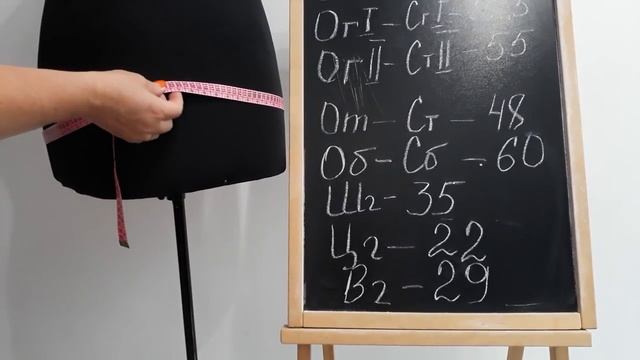 ОгI – СгI –
ОгII – СгII – 55
От – Ст – 48
Об – Сб – 60
Шг – 35
Цг – 22
Вг – 29